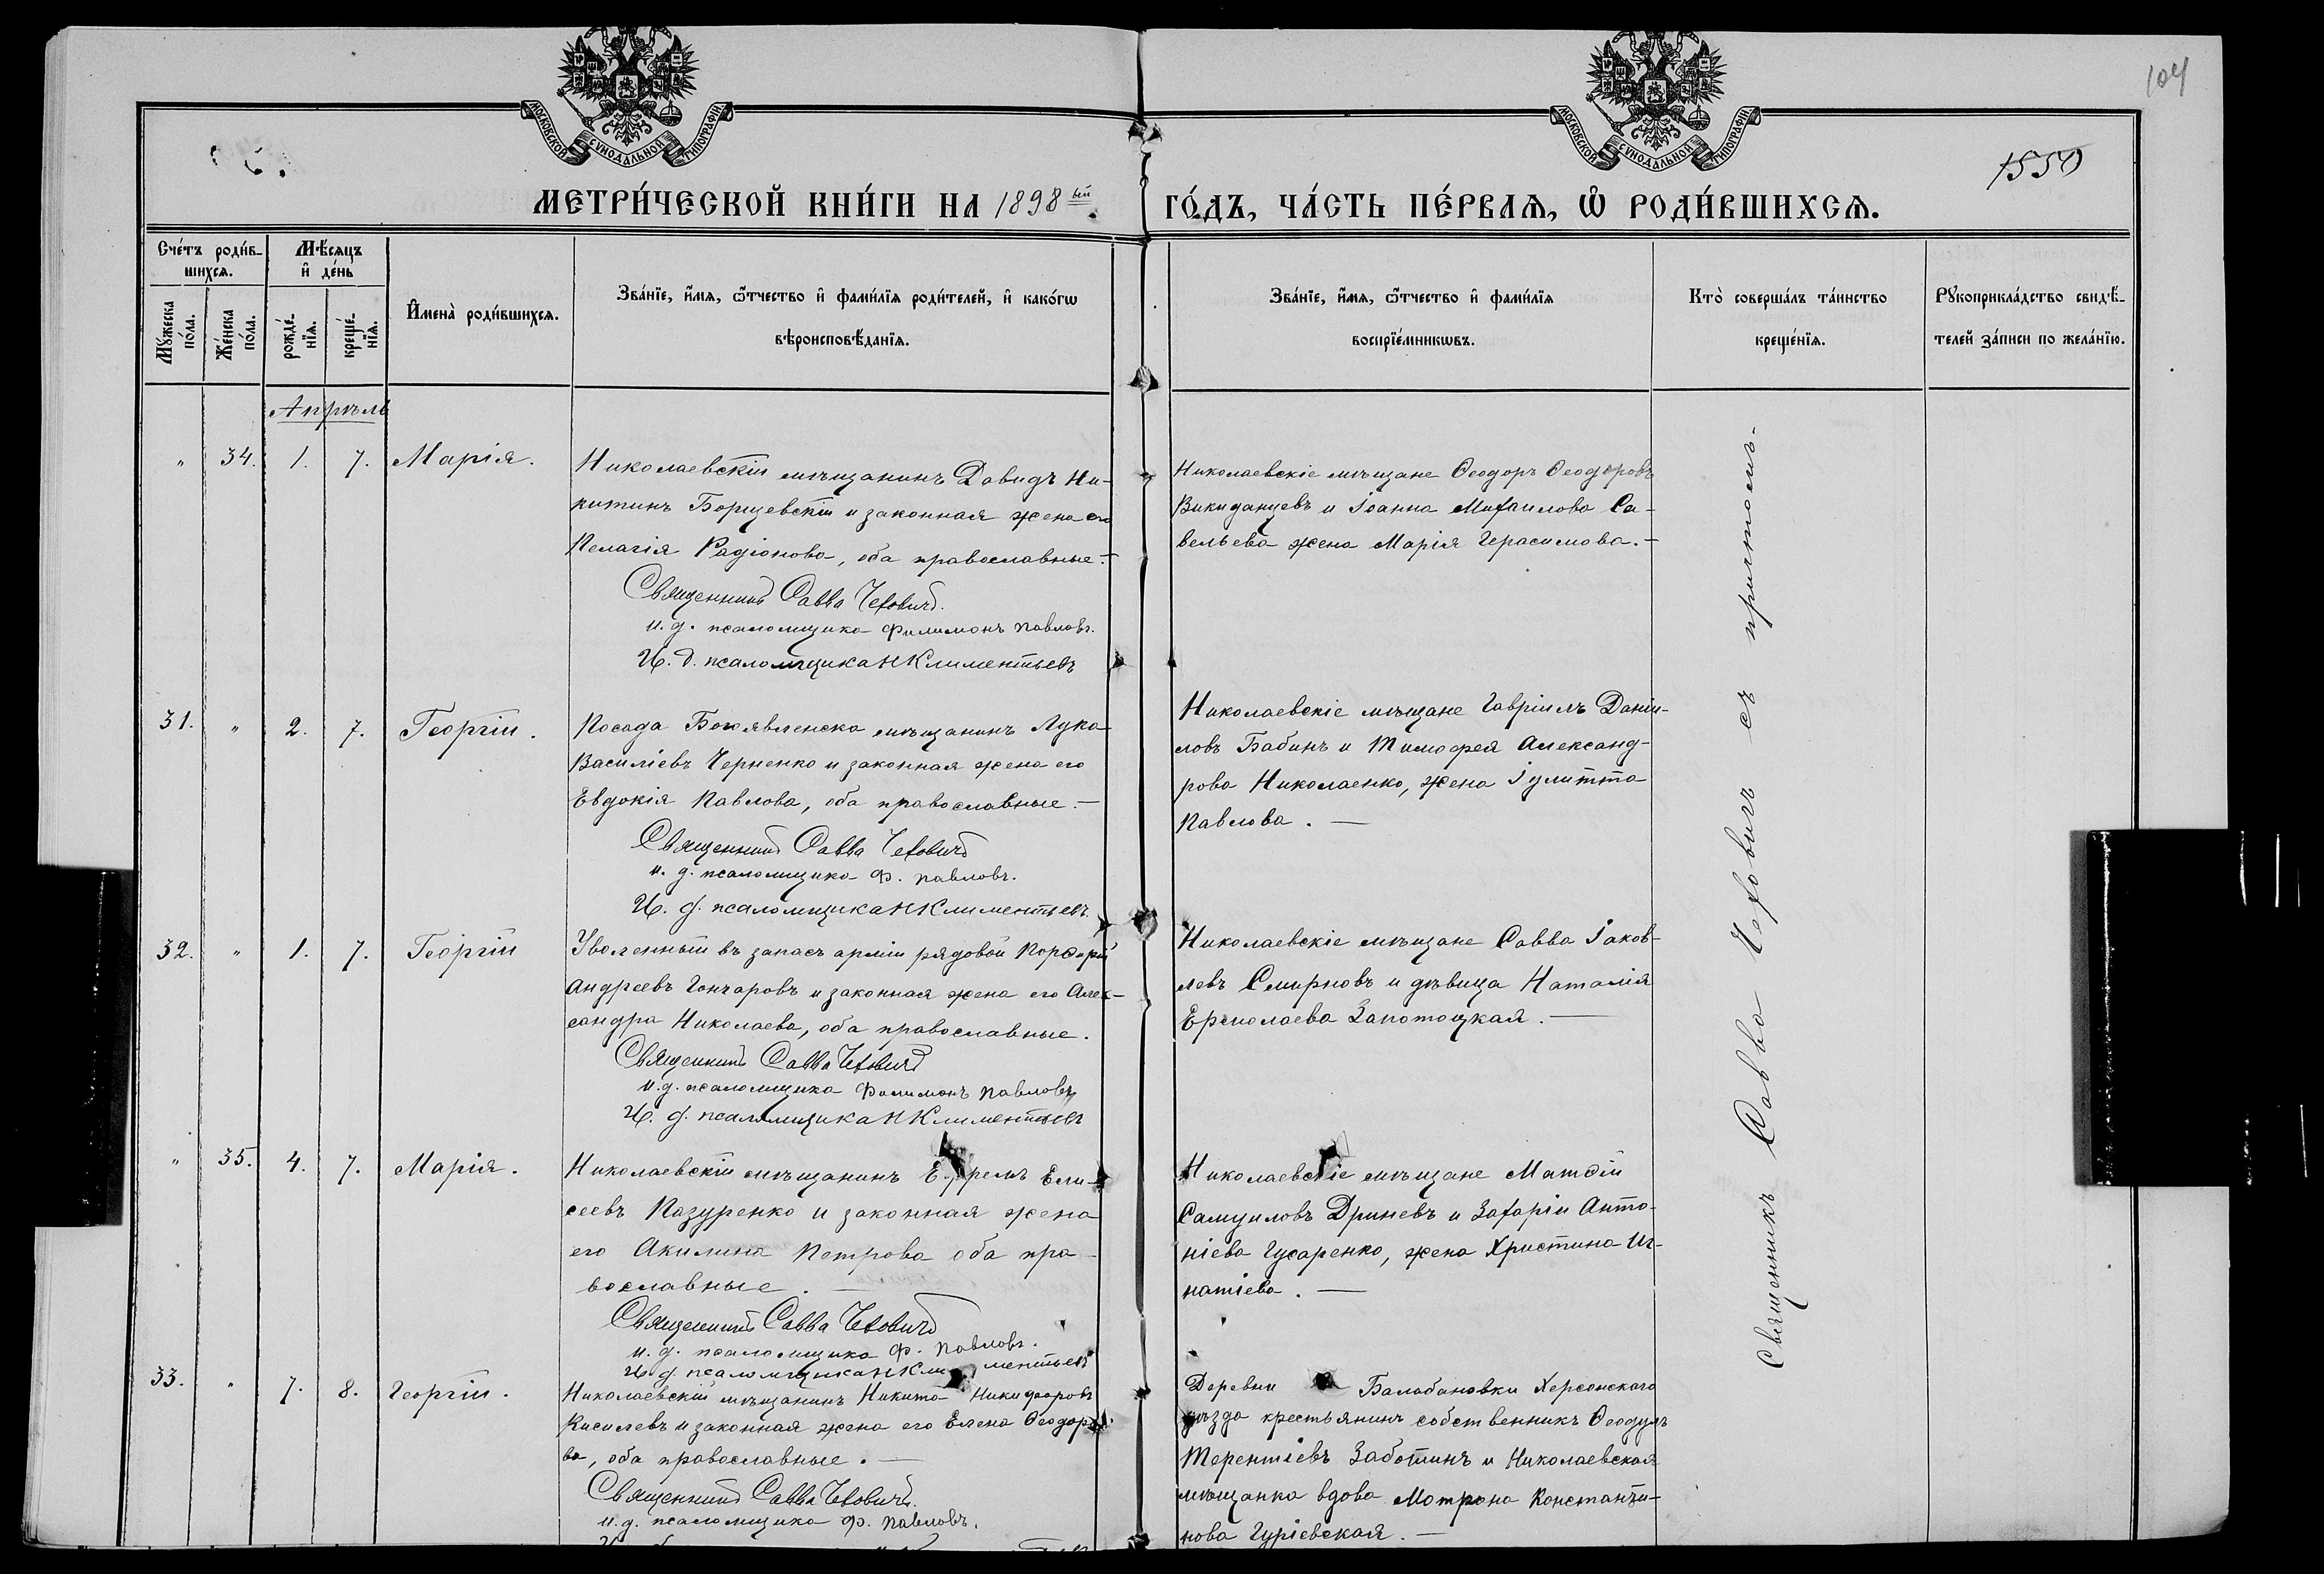 104
1550
МОСКОВСКОЙ СѴНОДАЛЬНОЙ ТИПОГРАФІИ.
МОСКОВСКОЙ СѴНОДАЛЬНОЙ ТИПОГРАФІИ.
МЕТРИ́ЧЕСКОЙ КНИ́ГИ НА 1898 ый ГО́ДЪ, ЧА́СТЬ ПЕ́РВАѦ, Ѽ РОДИ́ВШИХСѦ.
Сче́тъ роди́в-
шихсѧ.
Мѣ́сѧцъ
и҆ де́нь
Мꙋ́жеска по́ла.
Же́нска по́ла.
рожде́-
нїѧ.
креще́-
нїѧ.
И҆мена̀ роди́вшихсѧ.
Зва́нїе, и҆́мѧ, ѻ҆́тчество и҆ фами́лїѧ роди́телей, и҆ како́гѡ
вѣроисповѣ́данїѧ.
Зва́нїе, и҆́мѧ, ѻ҆́тчество и҆ фами́лїѧ
воспрїе́мникѡвъ.
Кто̀ соверша́лъ та́инство
креще́нїѧ.
Рꙋкоприкла́дство свидѣ́-
телей за́писи по жела́нїю.
Апрѣль
" 34. 1. 7. Марія.
Николаевскій мѣщанинъ Давидъ Ни-
китинъ Борщевскій и законная жена его
Пелагія Радіонова, оба православные.-
Священникъ Савва Чехович.
и. д. псаломщика Филимонъ Павловъ.
И. д. псаломщика Н Климентьевъ
Николаевскіе мѣщане Ѳеодоръ Ѳеодоровъ
Викиданцевъ и Іоанна Михаилова Са-
вельева жена Марія Герасимова.-
31. " 2. 7. Георгій.
Посада Богоявленска мѣщанинъ Лука
Василіевъ Черненко и законная жена его
Евдокія Павлова, оба православные.-
Священникъ Савва Чехович
и. д. псаломщика Ф. Павловъ.
И. д. псаломщика Н Климентьевъ.
Николаевскіе мѣщане Гавріилъ Даніи-
ловъ Бабинъ и Тимофея Александ-
рова Николаенко, жена Іулитта
Павлова.-
32. " 1. 7. Георгій
Уволенный въ запасъ арміи рядовой Порфирій
Андреевъ Гончаровъ и законная жена его Алек-
сандра Николаева, оба православные.
Священникъ Савва Чехович
и. д. псаломщика Филимонъ Павловъ
И. д. псаломщика Н Климентьевъ
Николаевскіе мѣщане Савва Іаков-
левъ Смирновъ и дѣвица Наталія
Ермолаева Запотоцкая.-
" 35. 4. 7. Марія.
Николаевскій мѣщанинъ Ефремъ Ели-
сеевъ Пазуренко и законная жена
его Акилина Петрова оба пра-
вославные.-
Священникъ Савва Чехович
и. д. псаломщика Ф. Павловъ.
И д. псаломщика Н Климентьевъ
Николаевскіе мѣщане Матѳій
Самуиловъ Дриневъ и Захаріи Анто-
ніева Гусаренко, жена Христина Иг-
натіева.-
33. " 7. 8. Георгій.
Николаевскій мѣщанинъ Никита Никифоровъ
Киселевъ и законная жена его Елена Ѳеодоро-
ва, оба православные.-
Священникъ Савва Чехович.
и. д. псаломщика Ф. Павловъ.
Деревни Балабановки Херсонскаго
уѣзда крестьянинъ собственникъ Ѳеодулъ
Терентіевъ Заботинъ и Николаевская
мѣщанка вдова Мотрона Константи-
нова Гуріевская.-
Священникъ Савва Чеховичъ съ причтомъ-